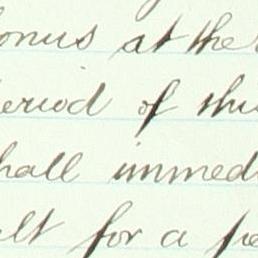 onus at the
eriod of thi
hall immed
ult for a pe